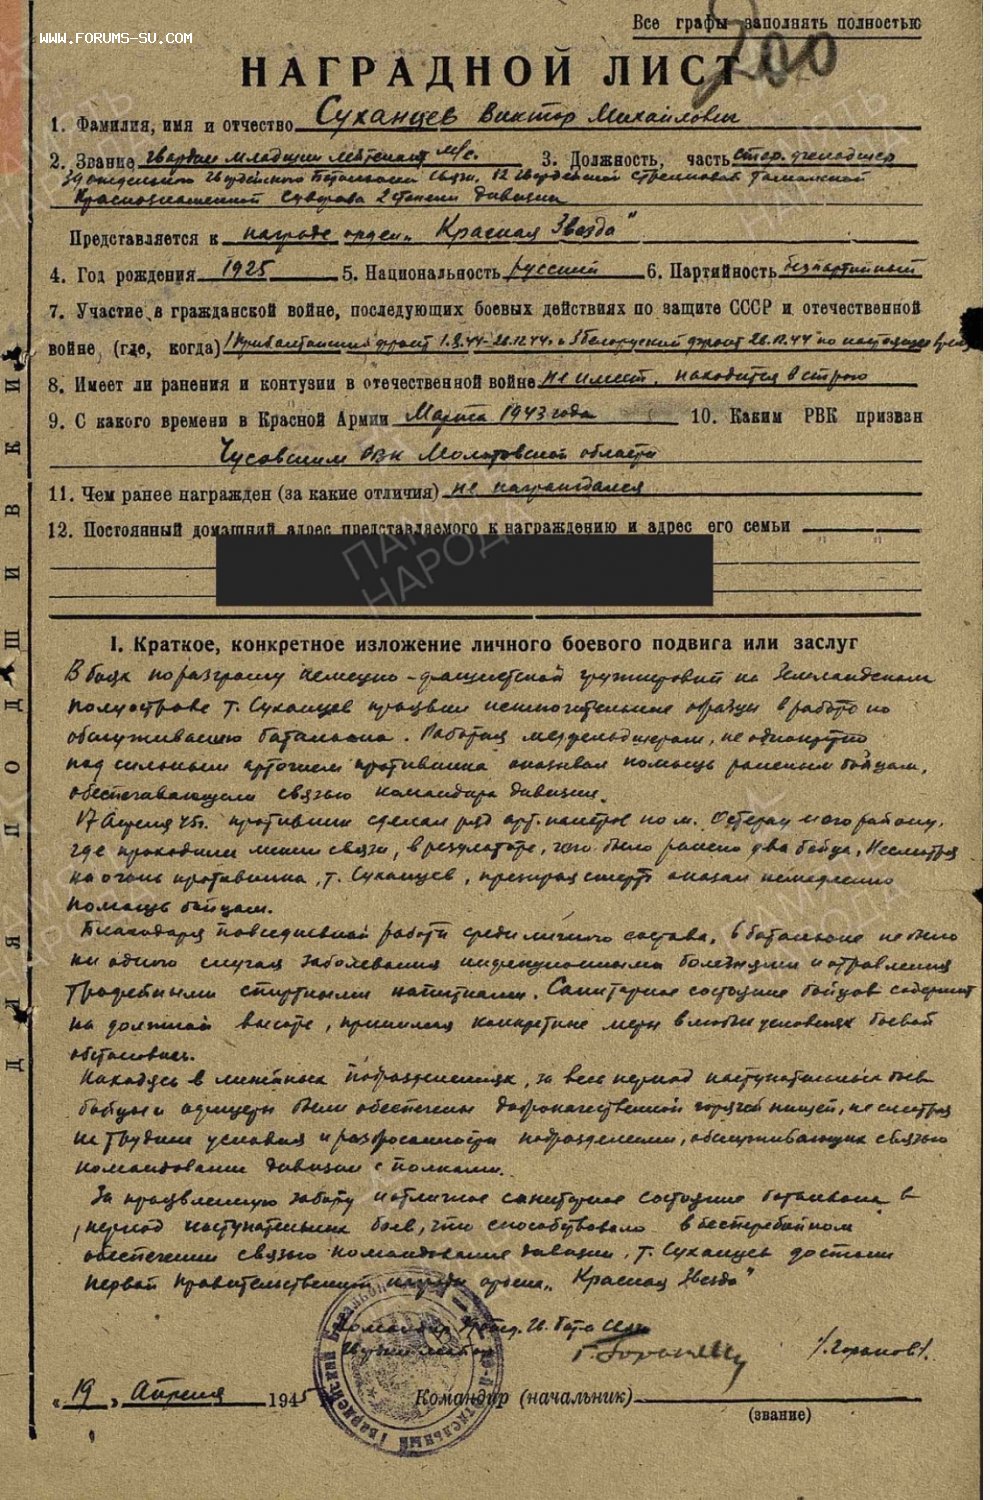 Все графы заполнять полностью
WWW.FORUMS-SU.COM
200
НАГРАДНОЙ ЛИСТ
1. Фамилия, имя и отчество Суханцев Виктор Михайлович
2. Звание гвардии младший лейтенант м/с. 3. Должность, часть стар. фельдшер
39 отдельного Гвардейского Батальона связи, 12 Гвардейской Стрелковой Пинской
Краснознаменной Суворова 2 степени дивизии
Представляется к награде орден „Красная Звезда"
4. Год рождения 1925 5. Национальность русский 6. Партийность безпартийный
7. Участие в гражданской войне, последующих боевых действиях по защите СССР и отечественной
войне (где, когда) 1 Прибалтийский фронт 1.9.44-26.12.44г. и 1 Белоруский фронт 26.12.44 по настоящее время
8. Имеет ли ранения и контузии в отечественной войне не имеет. находится в строю
9. С какого времени в Красной Армии Марта 1943 года 10. Каким РВК призван
Чусовским РВК Молотовской области
11. Чем ранее награжден (за какие отличия) не награждался
12. Постоянный домашний адрес представляемого к награждению и адрес его семьи
ПАМЯТЬ
НАРОДА
ДЛЯ ПОДШИВКИ
I. Краткое, конкретное изложение личного боевого подвига или заслуг
В боях по разгрому немецко-фашистской группировки на Земландском
полуострове т. Суханцев проявил исключительные образцы в работе по
обслуживанию батальона. Работая медфельдшером, не однократно
под сильным артогнем противника оказывал помощь раненым бойцам,
обеспечивающим связью командира дивизии.
17 Апреля 45г. противник сделал ряд арт. налетов по м. и его району,
где проходили линии связи, в результате, чего было ранено два бойца. Несмотря
на огонь противника, т. Суханцев, презирая смерть оказал немедленно
помощь бойцам.
Благодаря повседневной работы среди личного состава, в батальоне не было
ни одного случая заболевания инфекционными болезнями и отравления
трофейными спиртными напитками. Санитарное состояние бойцов содержит
на должной высоте, принимая конкретные меры в любых условиях боевой
обстановки.
Находясь в линейных подразделениях, за весь период наступательных боев
бойцы и офицеры были обеспечены доброкачественной горячей пищей, не смотря
на трудные условия и разбросанность подразделений, обслуживающих связью
командование дивизии с полками.
За проявленную заботу и отличное санитарное состояние батальона в
период наступательных боев, что способствовало в бесперебойном
обеспечении связью командования дивизии, т. Суханцев достоин
первой правительственной награды ордена „Красная Звезда"
Командир 39 отд. Гв. Бат-на Связи
Гвардии майор /Горанов/.
„19„ Апреля 1945 Командир (начальник)
(звание)